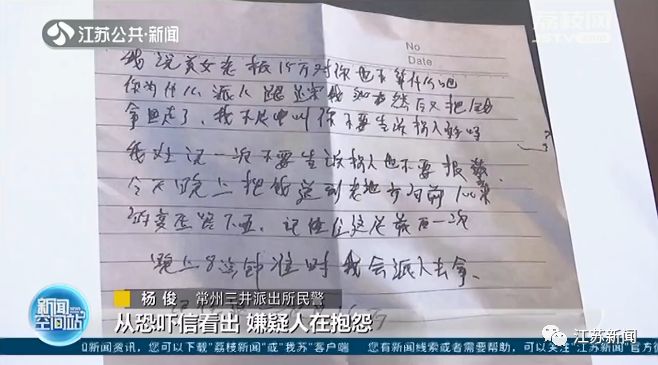 江苏公共·新闻
荔枝网
JSTV.com
No
Date
我说美女老板15万对你也不算什么吧
你为什么派人跟踪我 后又把
拿回走了，我不是叫你不要告诉
我在说一次不要告诉 人也不要报警
今天晚上把钱送到老地方向前100米
的变压器下面。记住 这是最后一次
晚上8点钟准时我会派人去拿。
杨俊 常州三井派出所民警
从恐吓信看出 嫌疑人在抱怨
新闻
空间站
新闻资讯，您可以下载"荔枝新闻"或"我苏"客户端 您有新闻线索或者需要帮助，可以关注"江苏新闻"官方微
江苏新闻